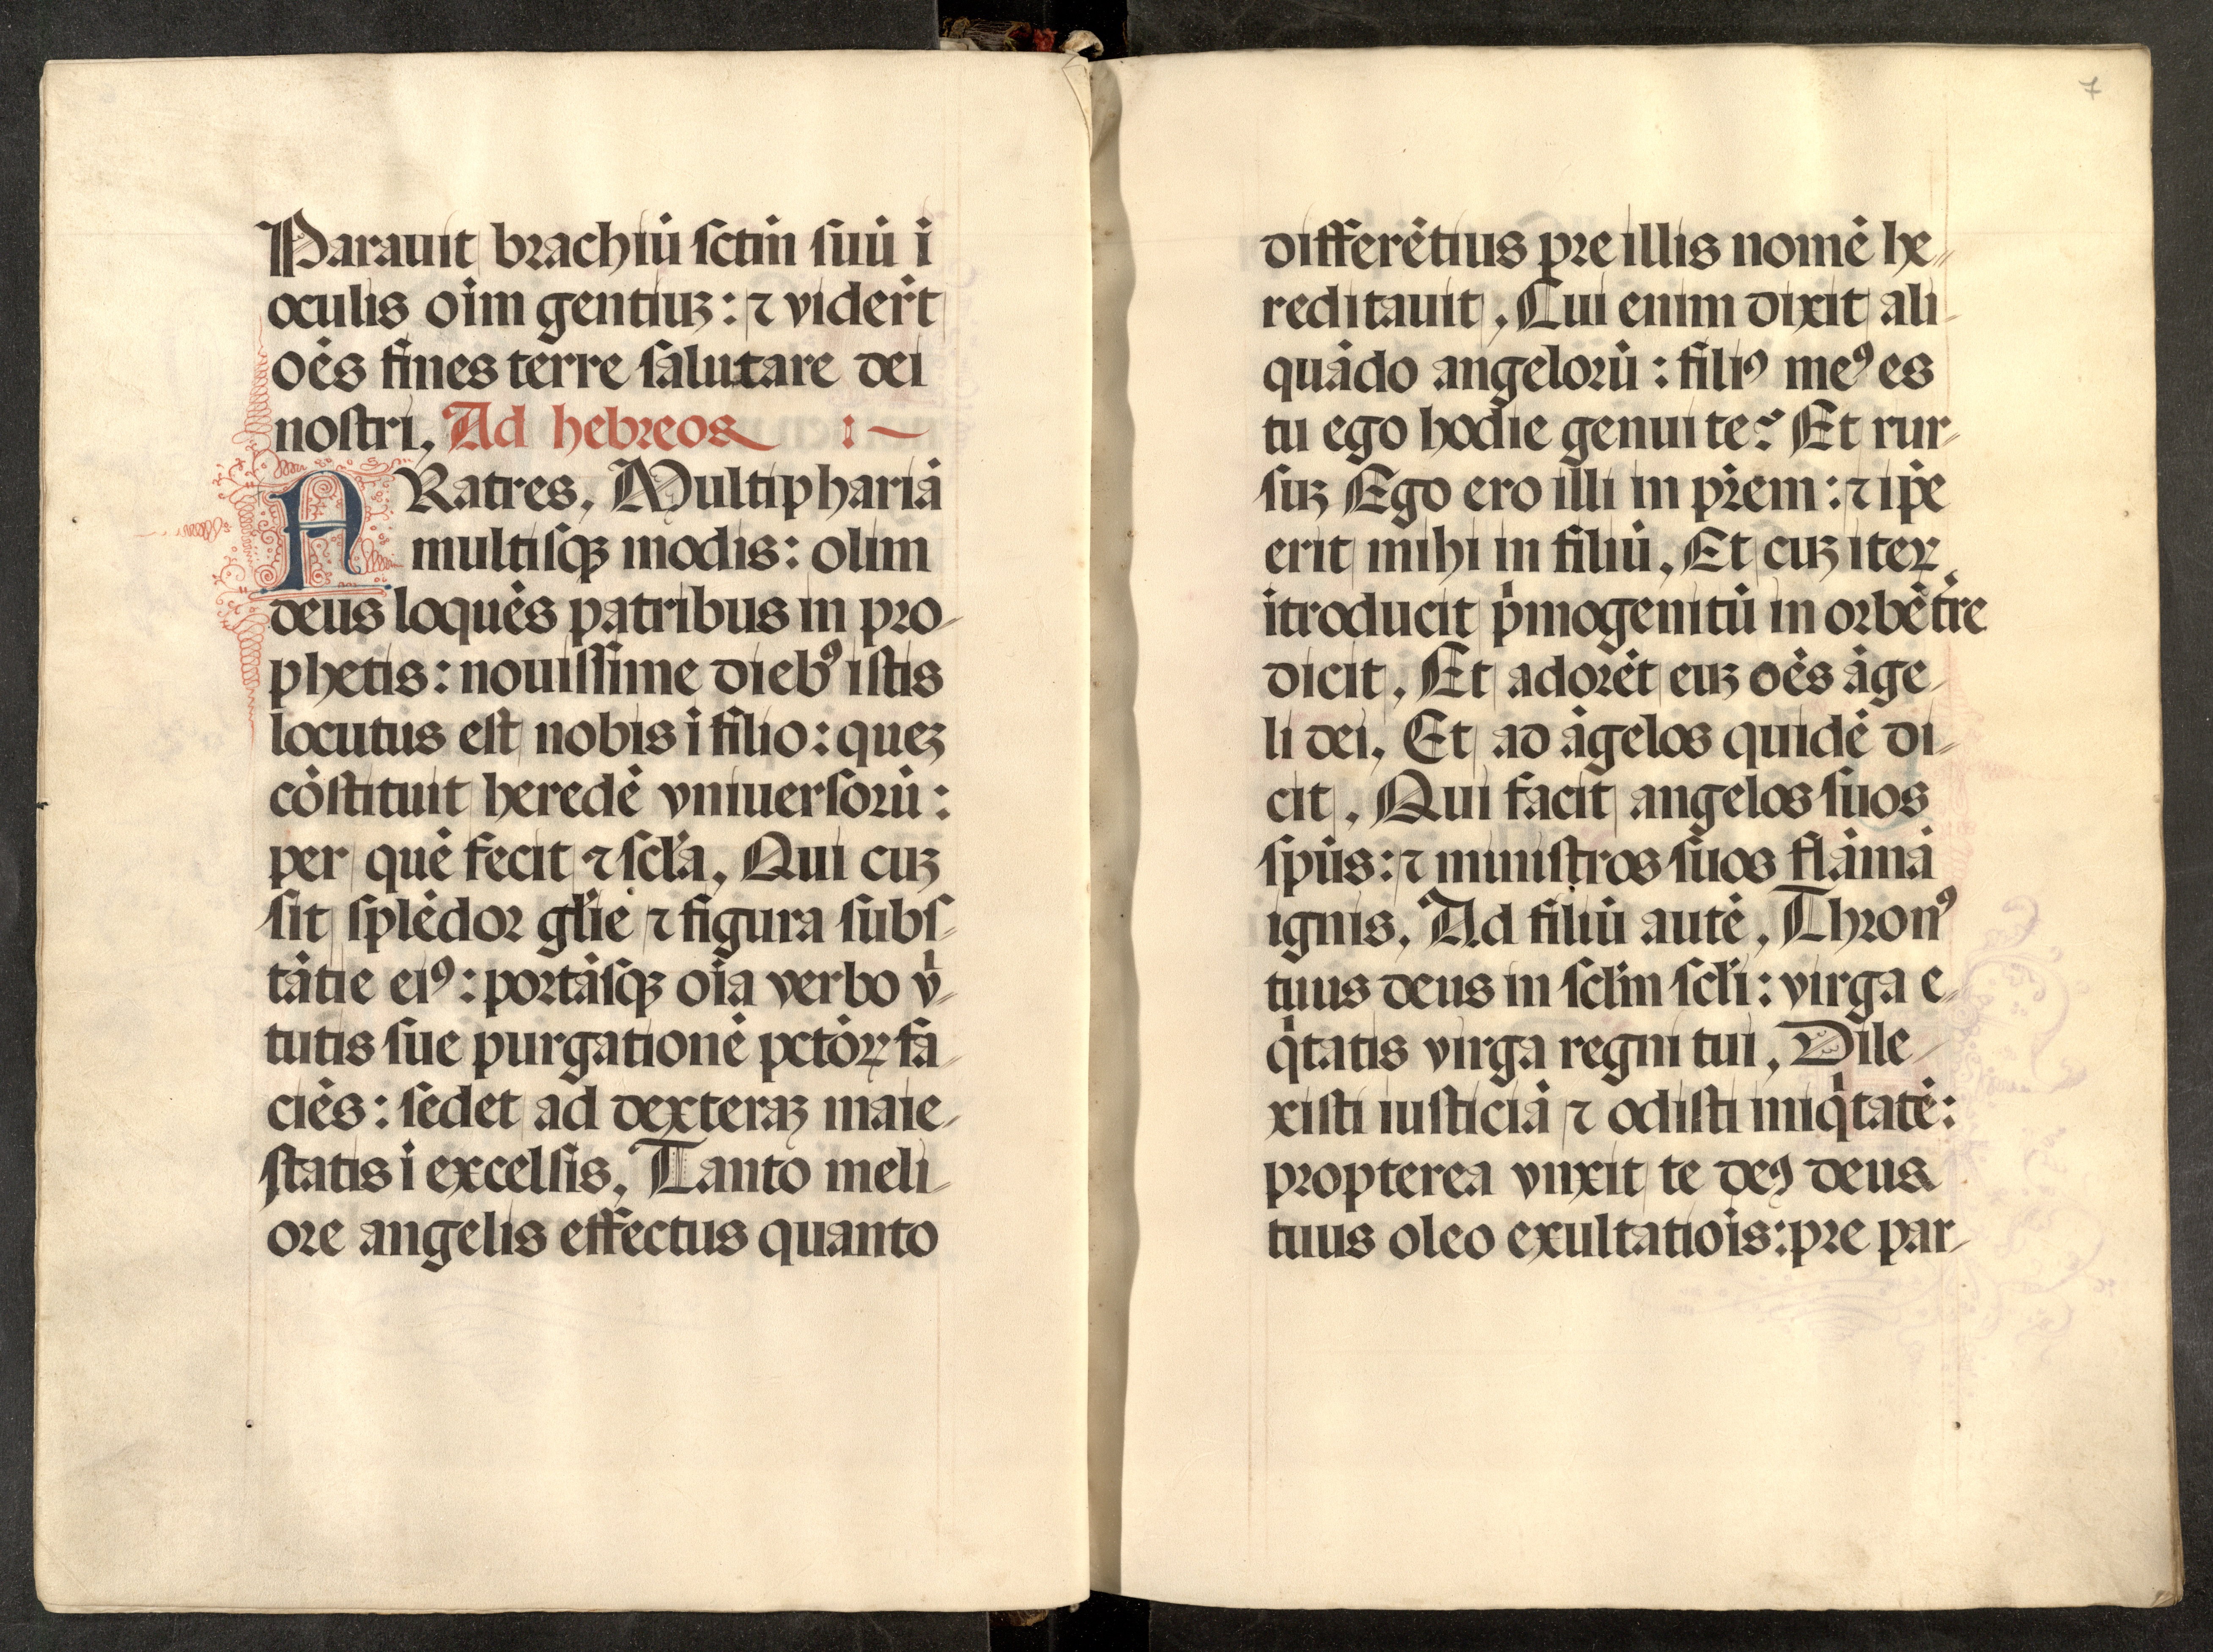 Parauit brachiū sctm̄ suū ī
oculis oīm gentiuꝫ: ⁊ vider̄t
oēs fines terre salutare dei
nostri, Ad hebreos :~
FRatres, Multiphariā
multisqꝫ modis: olim
deus loquēs patribus in pro-
phetis: nouissime diebꝰ istis
locutus est nobis ī filio: queꝫ
cōstituit heredē vniuersorū:
per quē fecit ⁊ scl̄a, Qui cuꝫ
sit splēdor gl̄ie ⁊ figura subs-
tātie eiꝰ: portāsqꝫ oīa verbo v̄-
tutis sue purgationē pctōꝝ fa-
ciēs: sedet ad dexteraꝫ maie-
statis ī excelsis, Tanto meli-
ore angelis effectus quanto
7
differētius pre illis nomē he-
reditauit, Cui enim dixit ali-
quādo angelorū: filiꝰ meꝰ es
tu ego hodie genui te? Et rur-
suꝫ Ego ero illi in pr̄em: ⁊ ip̄e
erit mihi in filiū, Et cuꝫ iteꝝ
ītroducit p̄mogenitū in orbē tr̄e
dicit, Et adorēt euꝫ oēs āge-
li dei, Et ad āgelos quidē di-
cit, Qui facit angelos suos
spūs: ⁊ ministros suos flāmā
ignis, Ad filiū autē, Thronꝰ
tuus deus in scl̄m scl̄i: virga e-
q̄tatis virga regni tui, Dile-
xisti iusticiā ⁊ odisti iniq̄tatē:
propterea vnxit te deꝰ deus
tuus oleo exultatiōis: pre par-